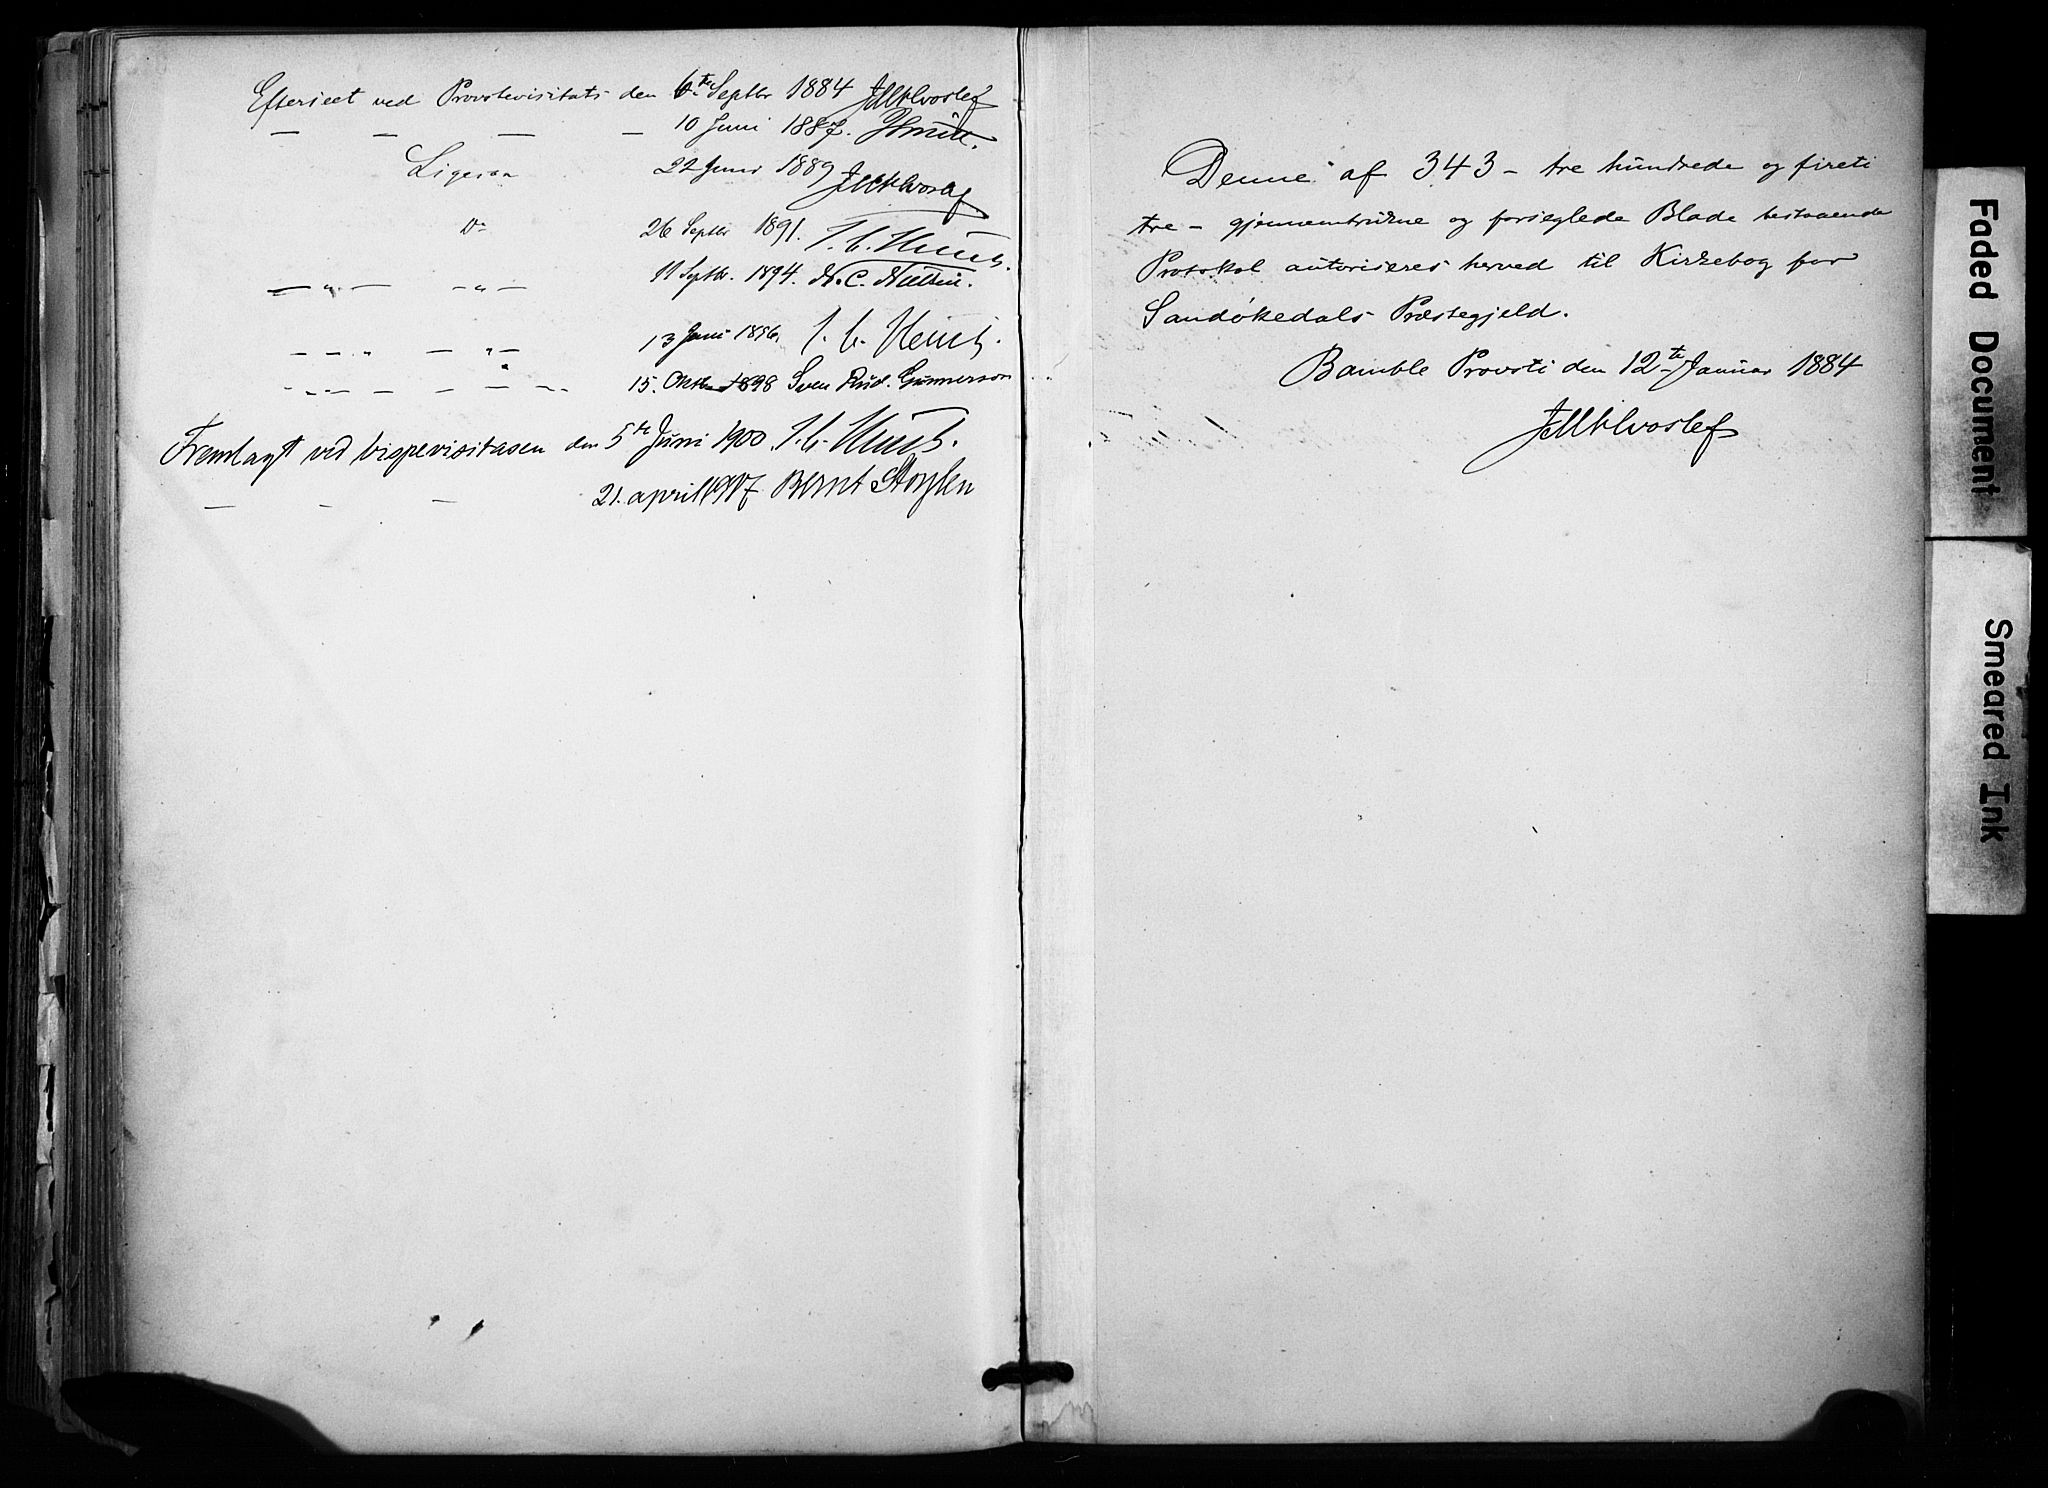 Efterseet ved Provstevisitats den 6te Septbr 1884 JMHvoslef
— — — — 10 Juni 1887. JSmitt.
Ligesaa 22 Juni 1889 JMHvoslef
Do 26 Septbr 1891. J. C. Heuch.
— „ — - „ - 11 Septbr. 1894. N. C.
— - - „ — „ - 13 Juni 1896. J. C. Heuch.
- „ - „ - - - - - 15. Oktbr 1898 Sven Rud. Gunnerson
Fremlagt ved bispevisitasen den 5te Juni 1900. J. C. Heuch.
— - — 21. april 1917 Bernt Støylen
Denne af 343 - tre hundrede og fireti
tre - gjennemtrukne og forseglede Blade bestaaende
Protokol autoriseres herved til Kirkebog for
Sandøkedals Præstegjeld.
Bamble Provsti den 12te Januar 1884
JMHvoslef
Faded Document
Smeared Ink